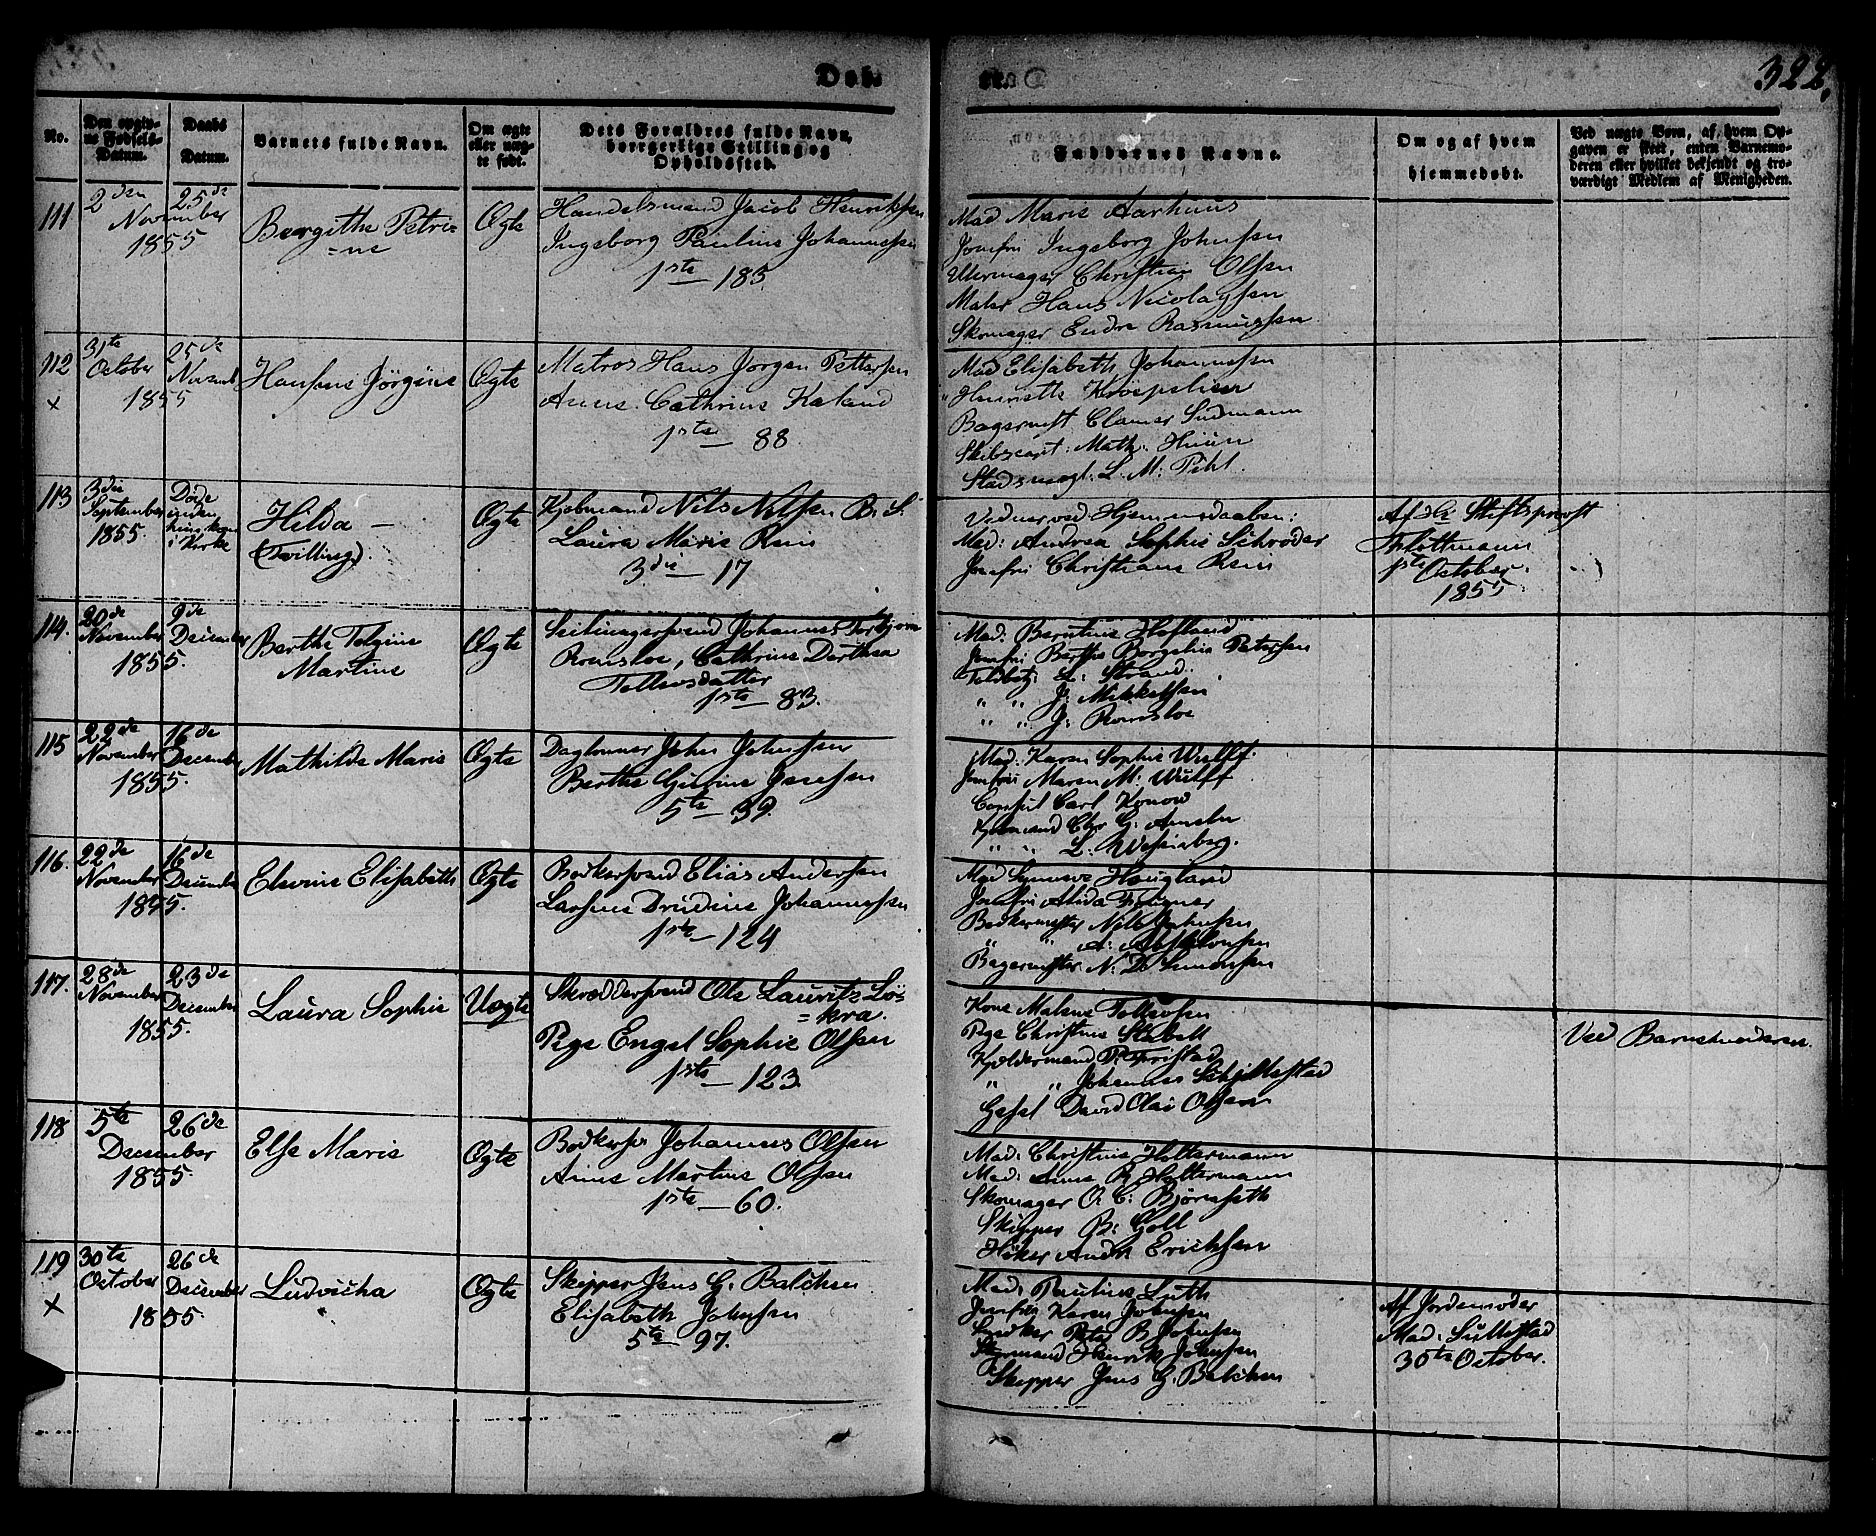 Døb.
322.
No.
Den opgiv-
ne Fødsels-
Datum.
Daabs
Datum.
Barnets fulde Navn.
Om ægte
eller uæg-
te født.
Dets Forældres fulde Navn,
borgerlige Stilling og
Opholdssted.
Faddernes Navne.
Om og af hvem
hjemmedøbt.
Ved uægte Børn, af hvem Op-
gaven er skeet, enten Barnemo-
deren eller hvilket bekjendt og tro-
værdigt Medlem af Menigheden.
111
2den
November
1855
25de
Bergithe Petri-
=ne
Ægte
Handelsmand Jacob Henriksen
Ingeborg Pauline Johannessen
1ste — 183
Mad Marie Aarhuus
Jomfru Ingeborg Johnsen
Uhrmager Christian Olsen
Maler Hans Nicolaysen
Skomager Endre Rasmussen
112
x
31te
October
1855
25de
Novemb
Hansine Jörgine
Ægte
Matros Hans Jörgen Pettersen
Anne Cathrine Kaland
1ste — 88
Mad Elisabeth Johannessen
" Henriette Kroepelien
Bagermest Clamer Sudmann
Skibscapt: Math:
Stadsmægl: L. M: Pihl.
113
3die
September
1855.
Døde
inden
i Kirke
Hilda —
(Tvilling).
Ægte
Kjøbmand Nils Nilsen B. S.
Laura Marie Reen
3die — 17
Vidner ved Hjemmedaaben:
Mad: Andrea Sophie Schrøder
Jomfru Christiane Reen
Af Hr Stiftsprovst
Thottmann
1ste October
1855
114.
20de
November
1855
9de
December
Berthe Tolgine
Martine
Ægte
Seilmagersvend Johannes Torbjørn
Romsloe, Cathrine Dorthea
Tollevsdatter
1ste — 83.
Mad: Berntine Hofland
Jomfru Berthe Borgelie Petersen
Toldbetj: L: Strand
" " J: Mikkelsen
" " J: Romsloe
115
22de
November
1855
16de
December
Mathilde Marie
Ægte
Dagleiner John Johnsen
Berthe Gurine Jensen
5te — 39.
Mad. Karen Sophie Wulff
Jomfru Maren M. Wulff
Consul Carl Konow
Kjøbmand Chr G:
" " L. Wesenberg.
116.
22de
November
1855.
16de
Decembe
Elevine Elisabeth
Ægte
Bødkersvend Elias Andersen
Larsine Drudine Johannessen
1ste — 124
Mad Synneve Hougland
Jomfru Alida Fougner
Bødkermester Nils Johnsen
" " A: Absalonsen
Bagermester N. D. Simonsen
117.
28de
November
1855.
23de
December
Laura Sophie
Uægte
Skræddersvend Ole Lauritz Lö=
=kra.
Pige Engel Sophie Olsen
1ste — 123
Kone Malene Tollevsen
Pige Christine Slabell
Kjeldermand P. Tveristad
" " Johannes Schjellestad
Gesel David Olai Olsen
Ved Barnemoderen.
118
5te
December
1855
26de
Else Marie
Ægte
Bødkersv Johannes Olsen
Anne Martine Olsen
1ste — 60.
Mad: Christine Holtermann
Mad: Anna R. Holtermann
Skomager O. C: Bjørnseth
Skipper B: Goll
Høker Andr Ericksen
119
x
30te
October
1855
26de
December
Ludvicha
Ægte
Skipper Jens G. Balchen
Elisabeth Johnsen
5te — 97.
Mad: Pauline Luth
Jomfru Karen Johnsen
Bødker Peter B Johnsen
Styrmand Henrik Johnsen
Skipper Jens G. Balchen
Af Jordemoder
Mad: Sullestad
30te October.